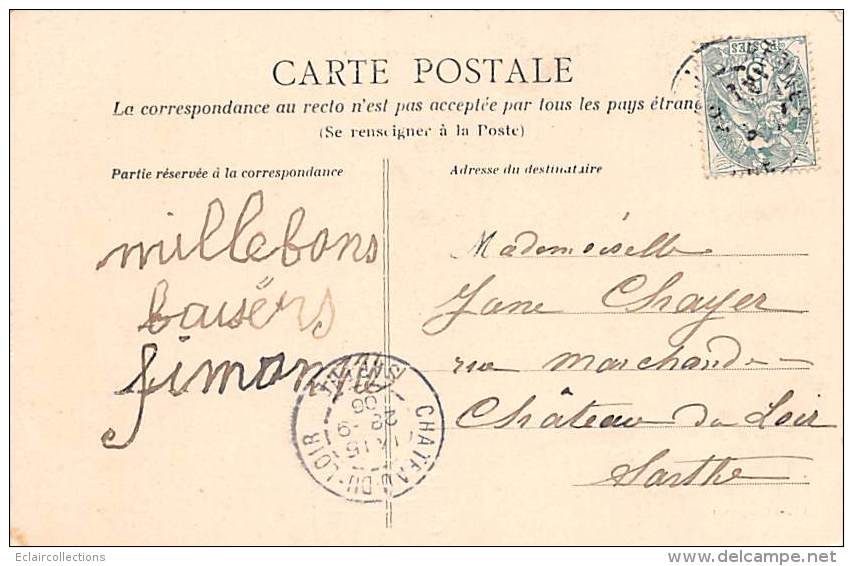 CARTE POSTALE
La correspondance au recto n'est pas acceptée par tous les pays étran
(Se renseigner à la Poste)
Partie réservée à la correspondance
Adresse du destinataire
mille bons
baisérs
Simone
Mademoiselle
Jane Chayer
rue Marchande
Château du Loir
Sarthe
POSTES
CHATEAU-DU-LOIR
SARTHE
Eclaircollections
delcampe.net